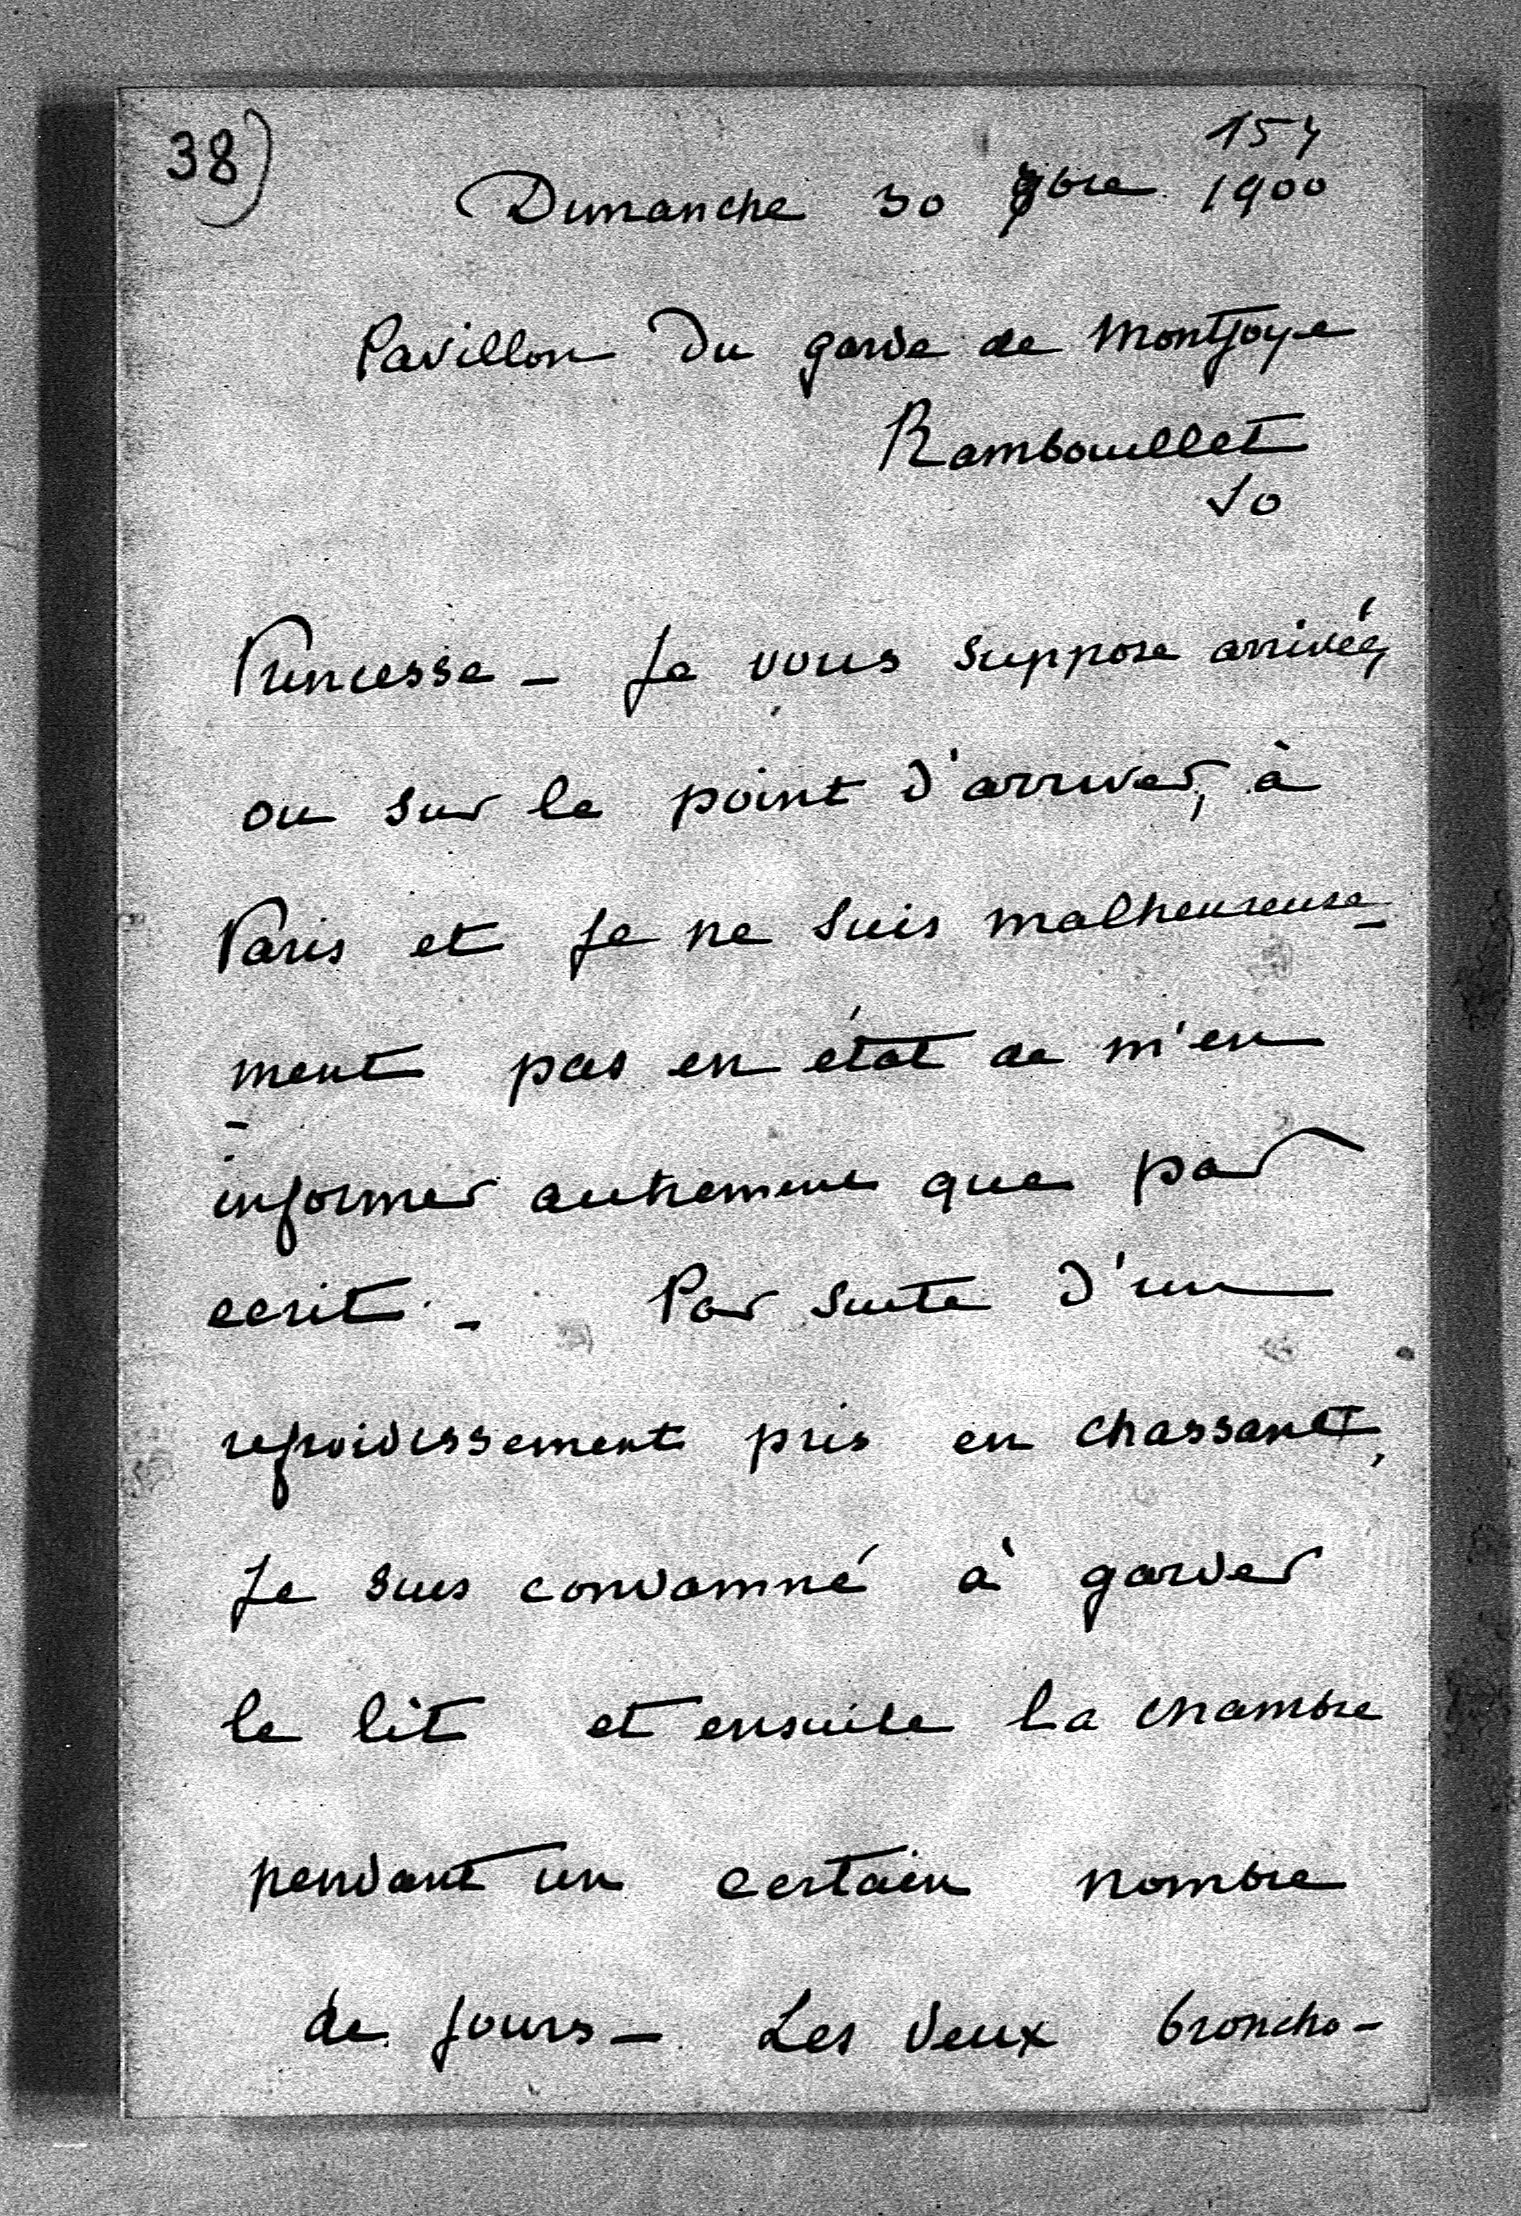 38)
154
Dimanche 30 9bre 1900
Pavillon du garde de Montjoye
Rambouillet
SO
Princesse - Je vous suppose arrivée,
ou sur le point d'arriver, à
Paris et je ne suis malheureuse-
ment pas en état de m'en
informer autrement que par
ecrit. - Par suite d'un
refroidissement pris en chassant,
Je suis condamné à garder
le lit et ensuite la chambre
pendant un certain nombre
de jours - Les deux broncho-